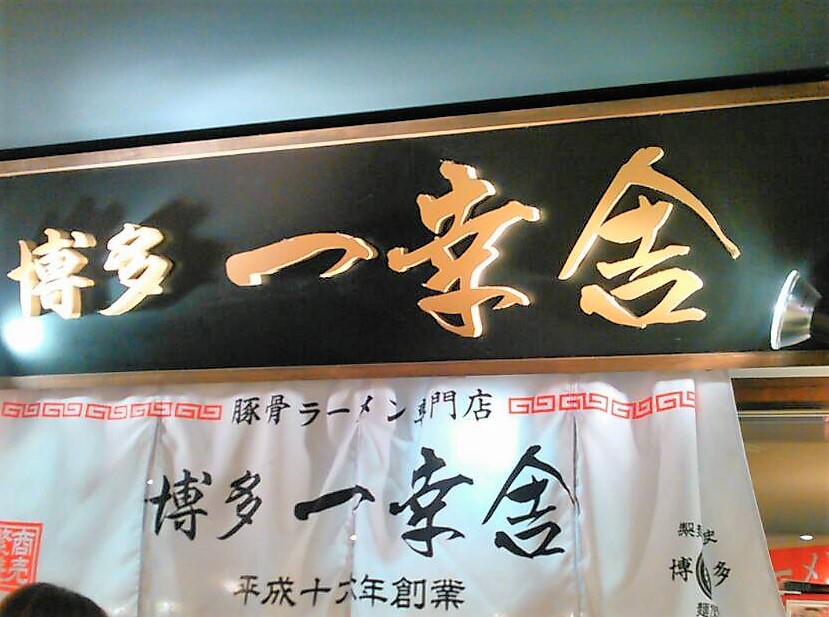 博多 一幸舍
豚骨ラーメン専門店
博多 一幸舍
平成十六年創業
商売
博多